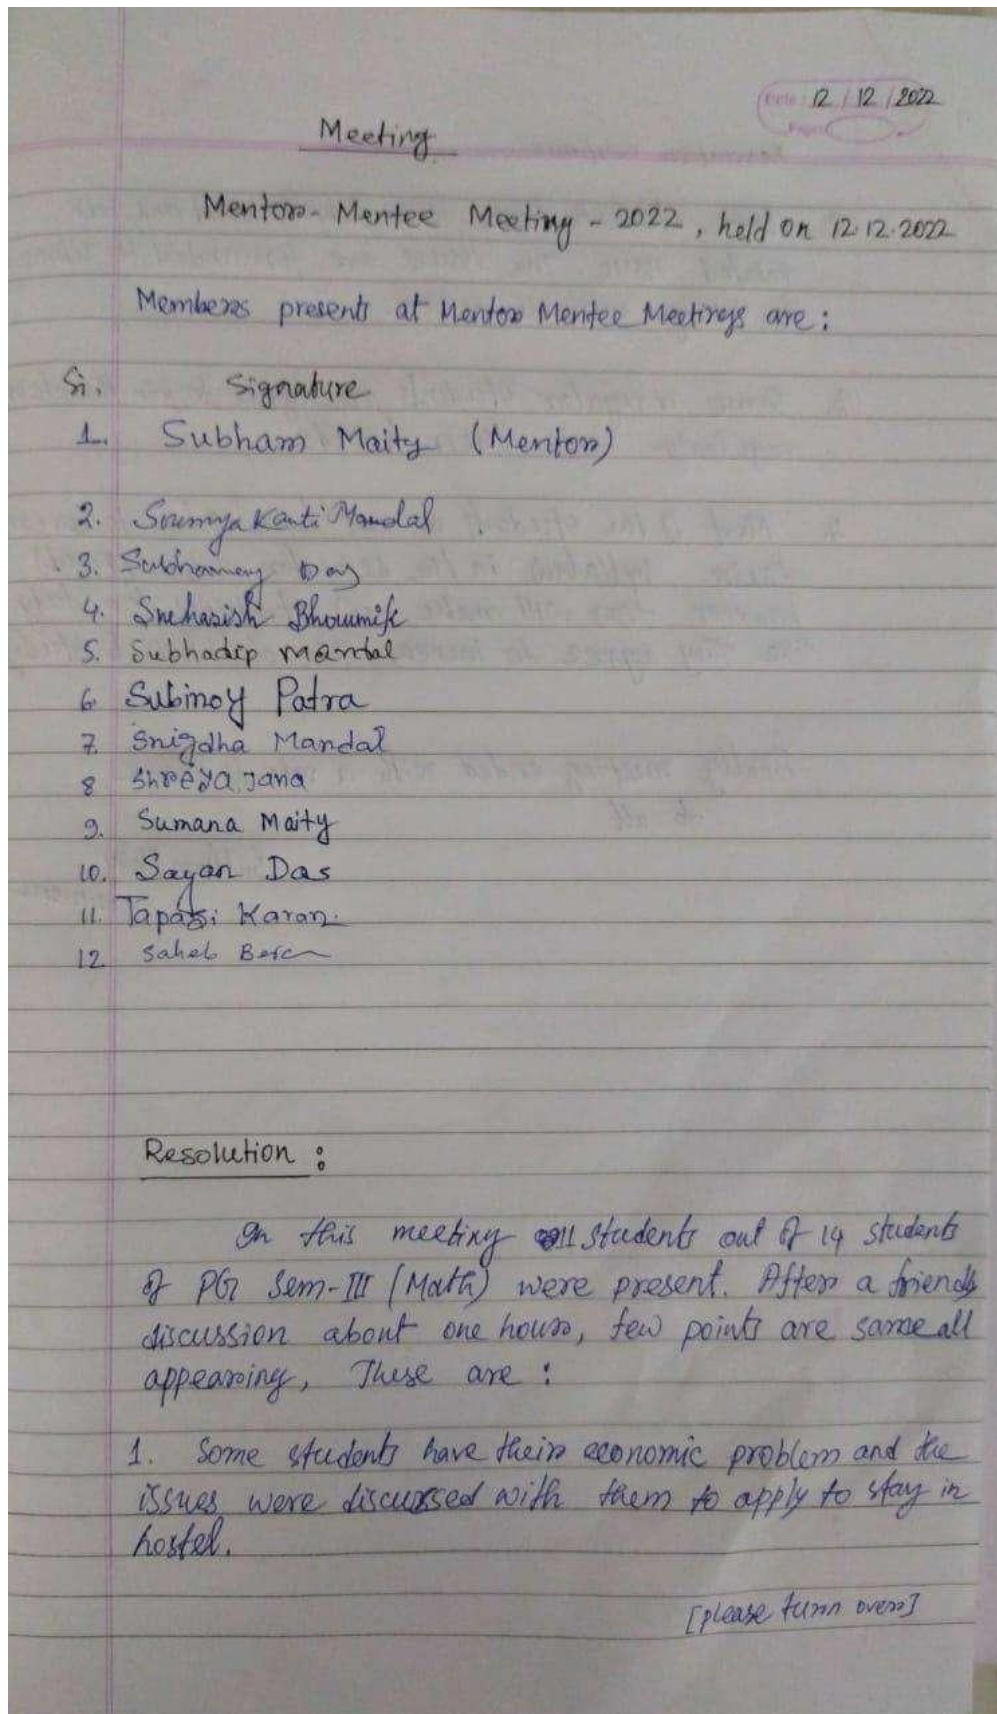 Date: 12/12/2022
Page:
Meeting
Mentor-Mentee Meeting-2022, held on 12.12.2022
Members presents at Mentor Mentee Meetings are:
Sl. Signature
1. Subham Maity (Mentor)
2. Soumya Kanti Mandal
3. Subhamoy Das
4. Snehasish Bhowmik
5. Subhadip Mandal
6. Subinoy Patra
7. Snigdha Mandal
8 Shreya Jana
9. Sumana Maity
10. Sayan Das
11. Tapasi Karan.
12 Saheb Bera
Resolution:
In this meeting 11 students out of 14 students
of PG Sem-III (Math) were present. After a friendly
discussion about one hour, few points are same all
appearing, These are:
1. Some students have their economic problem and the
issues were discussed with them to apply to stay in
hostel.
[please turn over]